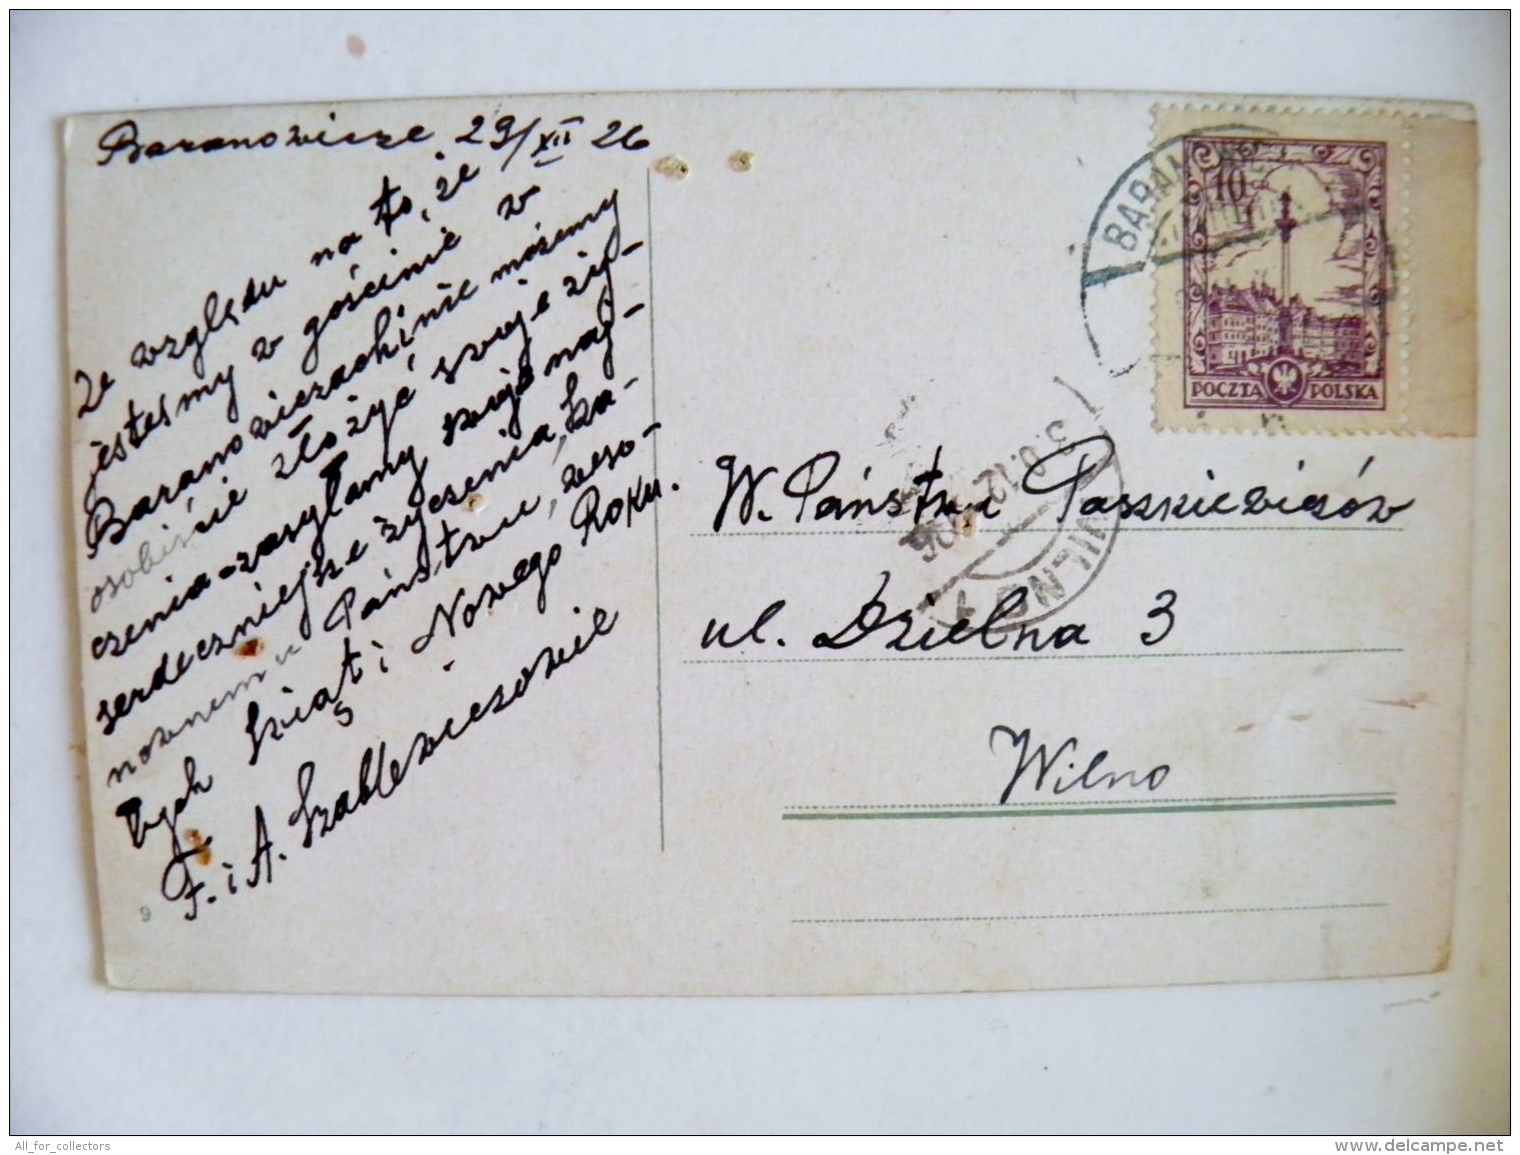 Baranowicze 29/XII 26
Ze względu na to, że
jesteśmy w gościnie w
Baranowiczach i nie możemy
osobiście złożyć swoje ży-
czenia - zasyłamy swoje naj-
serdeczniejsze życzenia, Sza-
nownemu Państwu, weso-
łych Świąt i Nowego Roku.
F. i A. Szablewiczowie
10
POCZTA POLSKA
BARAN
30.12
WILNO 1
W. Państwa Paszkiewiczów
ul. Dzielna 3
Wilno
All_for_collectors
www.delcampe.net